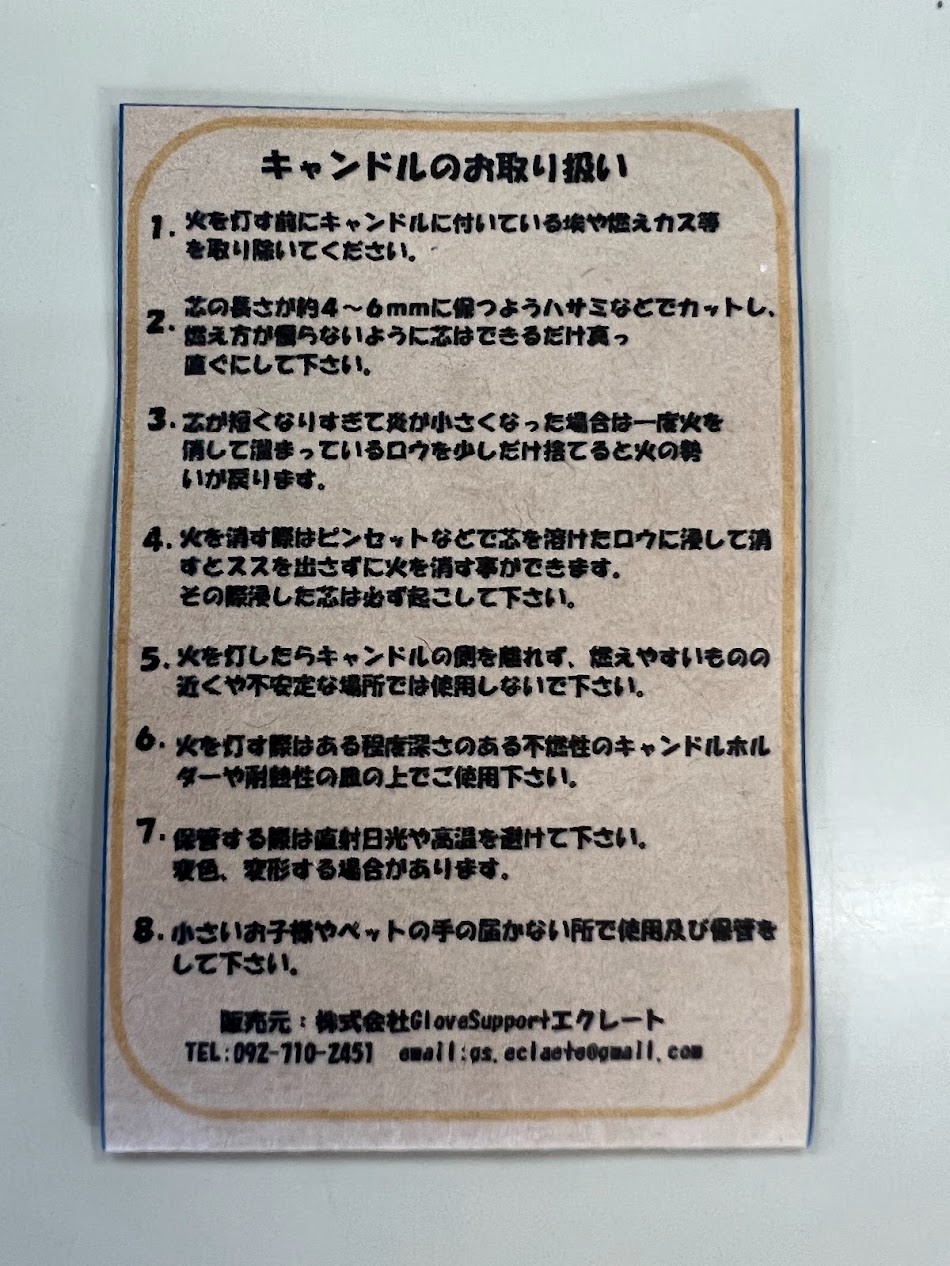 キャンドルのお取り扱い
1. 火を灯す前にキャンドルに付いている埃や燃えカス等
を取り除いてください。
2. 芯の長さが約4～6mmに保つようハサミなどでカットし、
燃え方が偏らないように芯はできるだけ真っ
直ぐにして下さい。
3. 芯が短くなりすぎて炎が小さくなった場合は一度火を
消して溜まっているロウを少しだけ捨てると火の勢
いが戻ります。
4. 火を消す際はピンセットなどで芯を溶けたロウに浸して消
すとススを出さずに火を消す事ができます。
その際浸した芯は必ず起こして下さい。
5. 火を灯したらキャンドルの側を離れず、燃えやすいものの
近くや不安定な場所では使用しないで下さい。
6. 火を灯す際はある程度深さのある不燃性のキャンドルホル
ダーや耐熱性の皿の上でご使用下さい。
7. 保管する際は直射日光や高温を避けて下さい。
変色、変形する場合があります。
8. 小さいお子様やペットの手の届かない所で使用及び保管を
して下さい。
販売元：株式会社GloveSupportエクレート
TEL:092-710-2451 email:gs.eclaete@gmail.com